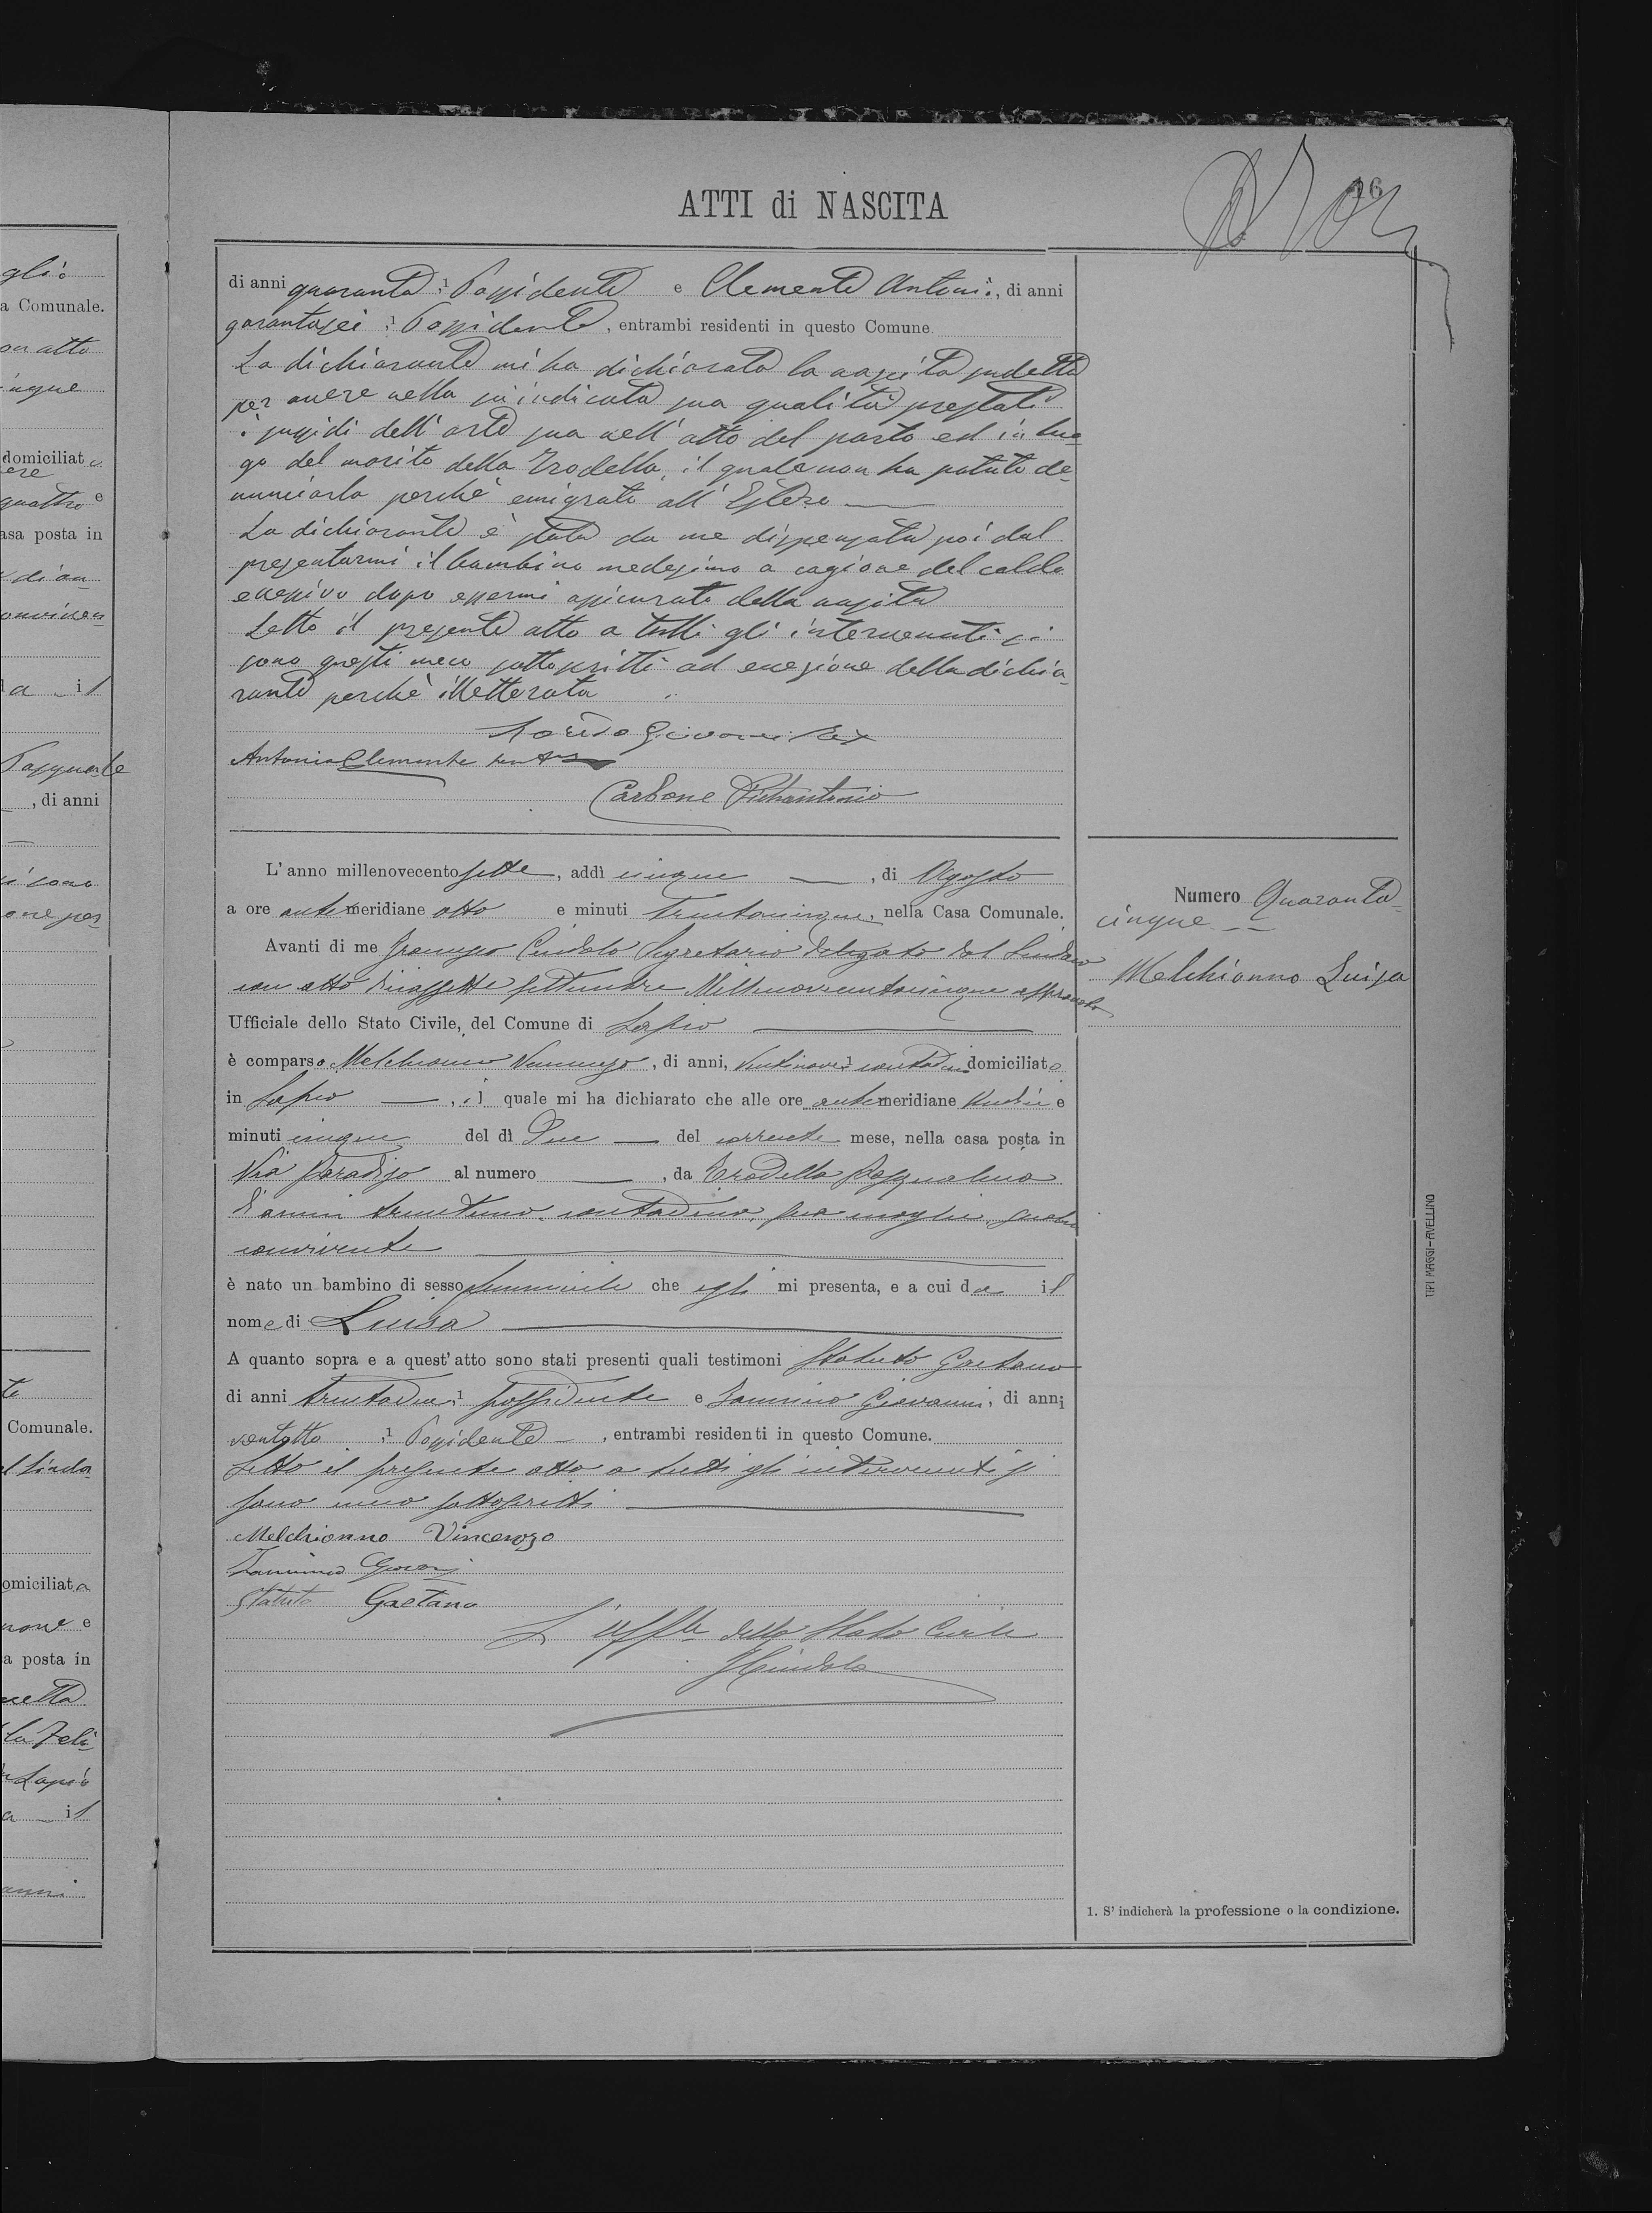 glio
a Comunale.
on atto
inque
domiciliat
ere
quattro e
asa posta in
di an
onviven
a il
Pasquale
, di anni
si sono
one per
te
Comunale.
l Sinda
omiciliata
nove e
a posta in
la Feli-
Lapio
a il
anni
16
ATTI di NASCITA
di anni quaranta, 1 Possidente e Clemente Antonio, di anni
quarantasei, 1 Possidente, entrambi residenti in questo Comune.
La dichiarante mi ha dichiarato la nascita sudetta
per avere nella su indicata sua qualità prestati
i sussidi dell'arte sua nell'atto del parto ed in luo-
go del marito della Trodella, il quale non ha potuto de-
nunciarla perchè emigrato all'Estero
La dichiarante è stata da me dispensata poi dal
presentarmi il bambino medesimo a cagione del caldo
eccessivo dopo essermi assicurato della nascita
Letto il presente atto a tutti gli intervenuti si
sono questi meco sottoscritti ad eccezione della dichia-
rante perchè illetterata
Giovanni
Antonio Clemente
Carbone
L'anno millenovecento sette, addì cinque, di Agosto
a ore antimeridiane otto e minuti trentacinque, nella Casa Comunale.
Avanti di me Cindolo Segretario delegato dal Sindaco
con atto diciassette settembre Millenovecentocinque approvato
Ufficiale dello Stato Civile, del Comune di Lapio
è comparso Melchionno Vincenzo, di anni, ventinove 1 contadino domiciliato
in Lapio, il quale mi ha dichiarato che alle ore antimeridiane undici e
minuti cinque del dì Due del corrente mese, nella casa posta in
Via Paradiso al numero, da Trodella Pasqualina
d'anni trentuno, contadina, sua moglie, seco
convivente
è nato un bambino di sesso femminile che egli mi presenta, e a cui da il
nome di Luisa
A quanto sopra e a quest'atto sono stati presenti quali testimoni Statuto Gaetano
di anni trentadue, 1 possidente e Iannino Giovanni, di anni
ventotto, 1 Possidente, entrambi residenti in questo Comune.
Letto il presente atto a tutti gli intervenuti si
sono meco sottoscritti
Melchionno Vincenzo
Statuto Gaetano
L'uff.le dello Stato Civile
Cindolo
Numero Quaranta-
cinque
Melchionno Luisa
1. S'indicherà la professione o la condizione.
TIPI MAGGI-AVELLINO